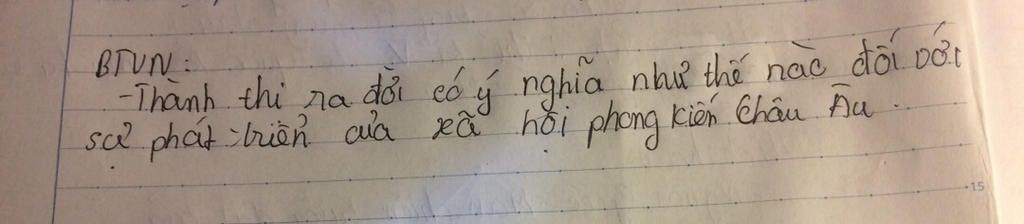 BTVN:
-Thành thị ra đời có ý nghĩa như thế nào đối với
sự phát triển của xã hội phong kiến Châu Âu.
15